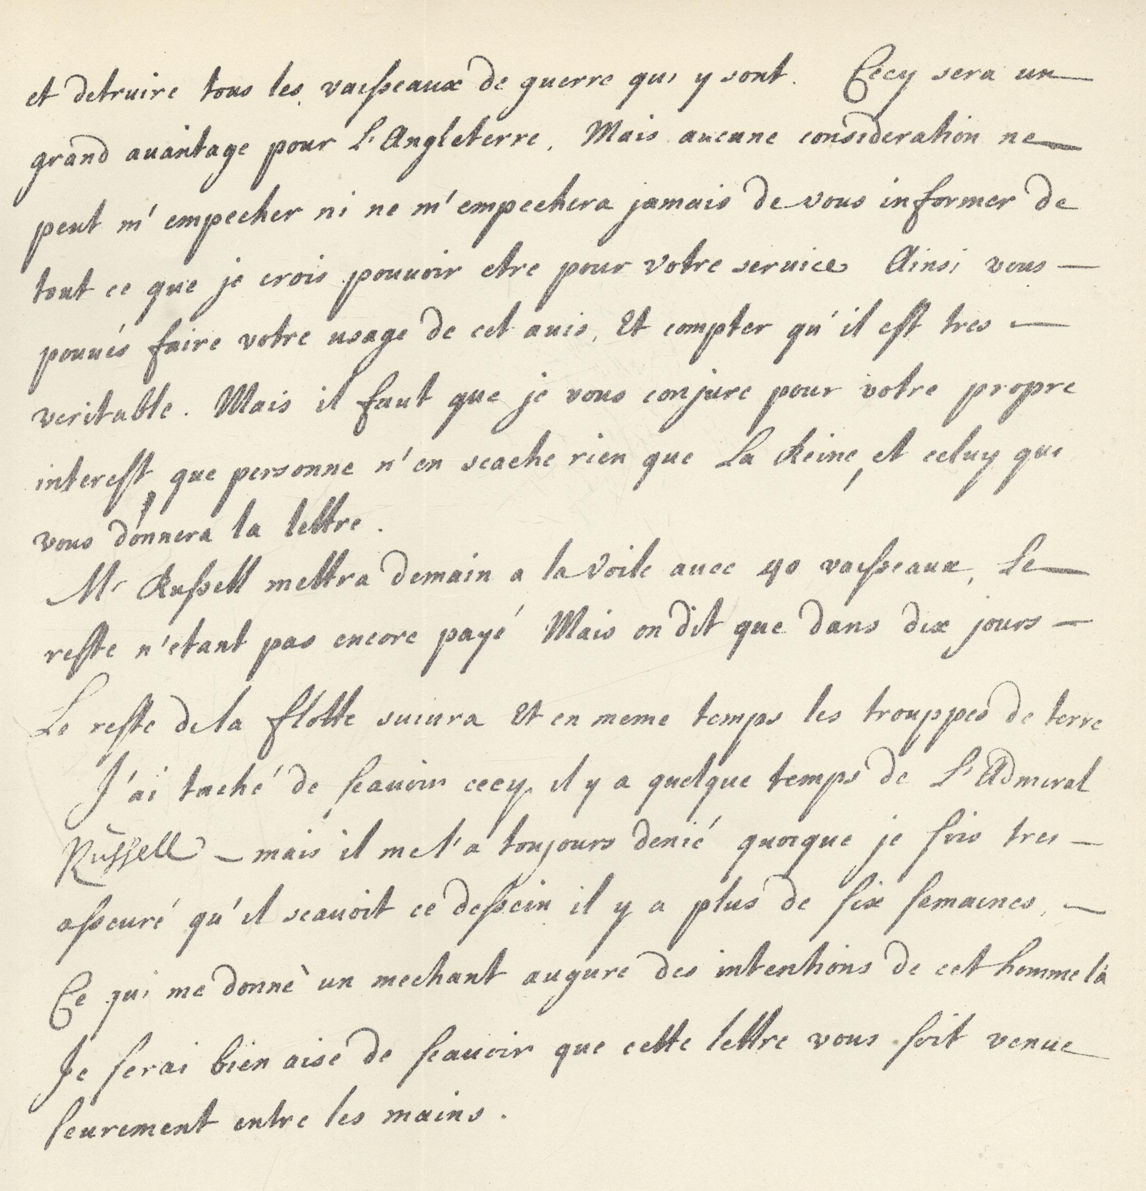 et detruire tous les vaisseaux de guerre qui y sont. Cecy sera un
grand auantage pour L'Angleterre. Mais aucune consideration ne
peut m'empecher ni ne m'empechera jamais de vous informer de
tout ce que je crois pouuoir etre pour votre seruice Ainsi vous
pouués faire votre usage de cet auis, Et compter qu'il est tres
veritable. Mais il faut que je vous conjure pour votre propre
interest, que personne n'en scache rien que La Reine, et celuy qui
vous donnera la lettre.
Mr Russell mettra demain a la Voile auec 40 vaisseaux, Le
reste n'etant pas encore payé Mais on dit que dans dix jours
Le reste de la flotte suiura Et en meme temps les trouppes de terre
J'ai taché de scauoir cecy il y a quelque temps de L'Admiral
Russell — mais il me l'a toujours denié quoique je sois tres
asseuré qu'il scauoit ce dessein il y a plus de six semaines,
Ce qui me donne un mechant augure des intentions de cet homme là
Je serai bien aise de scauoir que cette lettre vous soit venue
seurement entre les mains.